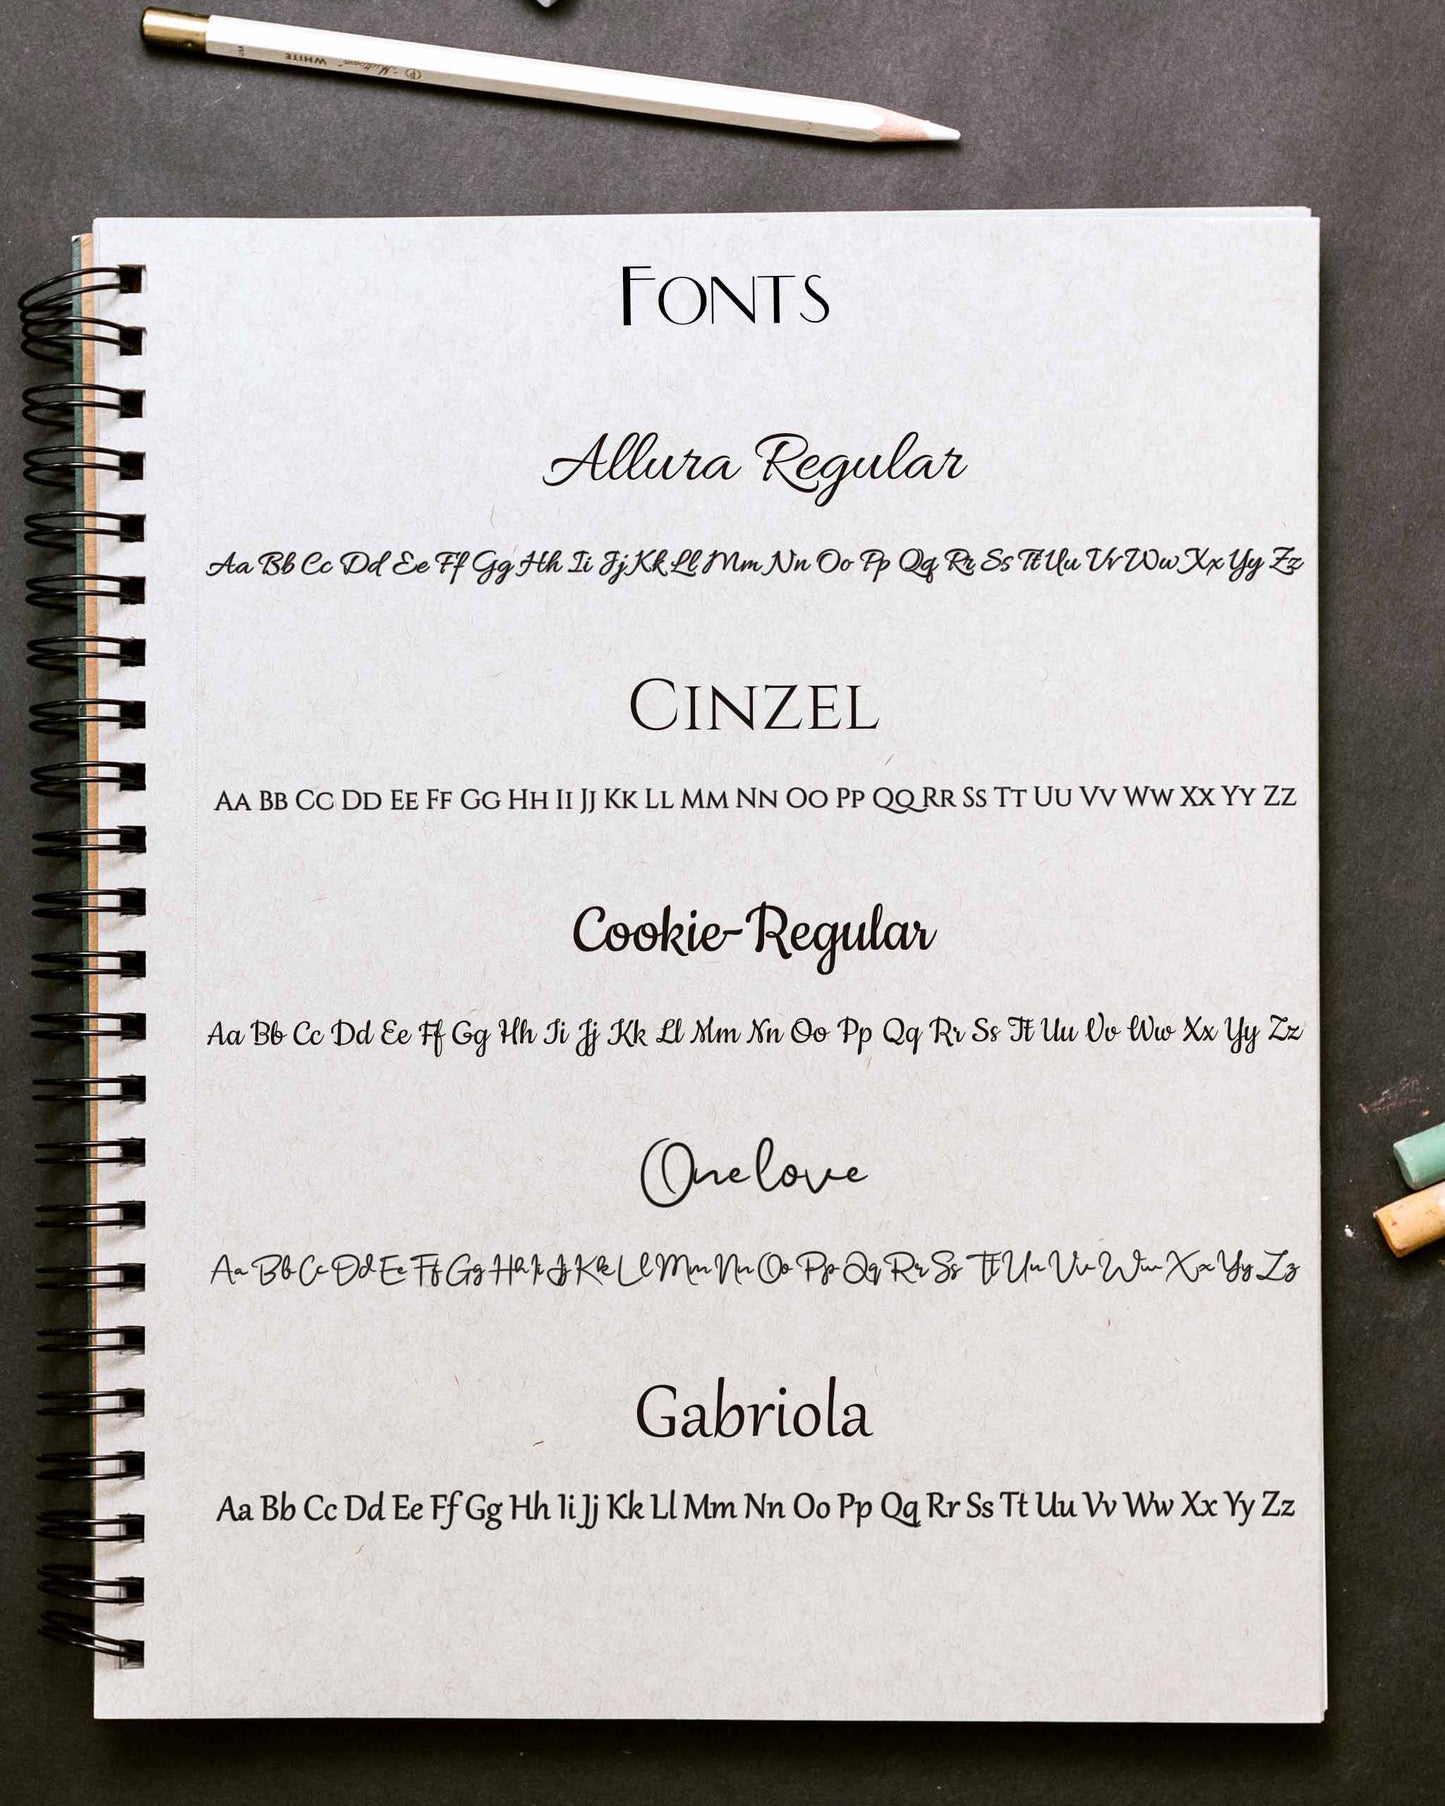 WHITE
FONTS
Allura Regular
Aa Bb Cc Dd Ee Ff Gg Hh Ii Jj Kk Ll Mm Nn Oo Pp Qq Rr Ss Tt Uu Vv Ww Xx Yy Zz
CINZEL
Aa Bb Cc Dd Ee Ff Gg Hh Ii Jj Kk Ll Mm Nn Oo Pp Qq Rr Ss Tt Uu Vv Ww Xx Yy Zz
Cookie-Regular
Aa Bb Cc Dd Ee Ff Gg Hh Ii Jj Kk Ll Mm Nn Oo Pp Qq Rr Ss Tt Uu Vv Ww Xx Yy Zz
One love
Aa Bb Cc Dd Ee Ff Gg Hh Ii Jj Kk Ll Mm Nn Oo Pp Qq Rr Ss Tt Uu Vv Ww Xx Yy Zz
Gabriola
Aa Bb Cc Dd Ee Ff Gg Hh Ii Jj Kk Ll Mm Nn Oo Pp Qq Rr Ss Tt Uu Vv Ww Xx Yy Zz